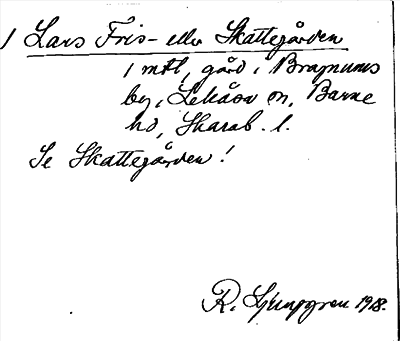 1 Lars Fris- eller Skattegården
1 mtl, gård i Bragnums
by, Lekåsa sn, Barne
hd, Skarab. l.
Se Skattegården!
R. Ljunggren 1918.